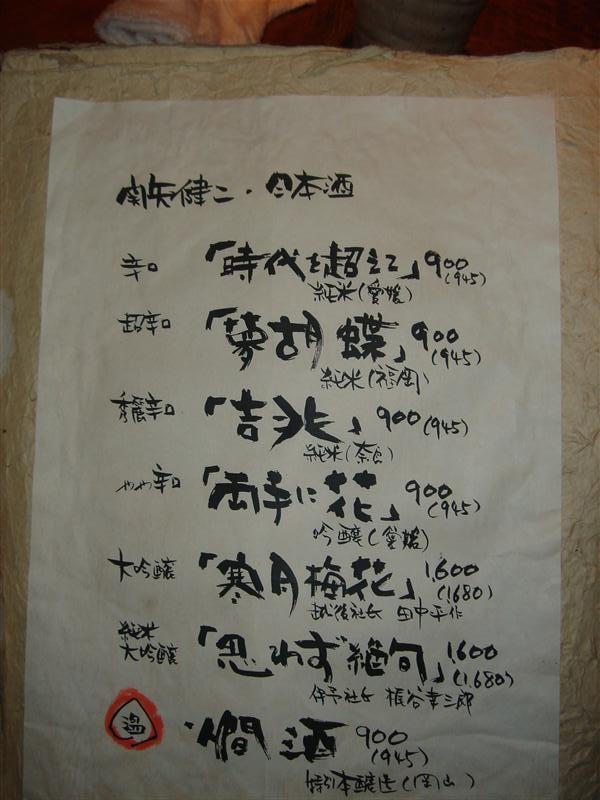 南矢健二・日本酒
辛口 「時代を超えて」 900 (945)
純米(愛媛)
超辛口 「夢胡蝶」 900 (945)
純米(福岡)
辛口 「吉兆」 900 (945)
純米(奈良)
やや辛口 「両手に花」 900 (945)
吟醸(愛媛)
大吟醸 「寒月梅花」 1,600 (1,680)
越後杜氏 田中平作
純米大吟醸 「思わず絶句」 1,600 (1,680)
伊予杜氏 幸三郎
温 燗酒 900 (945)
特別本醸造(岡山)